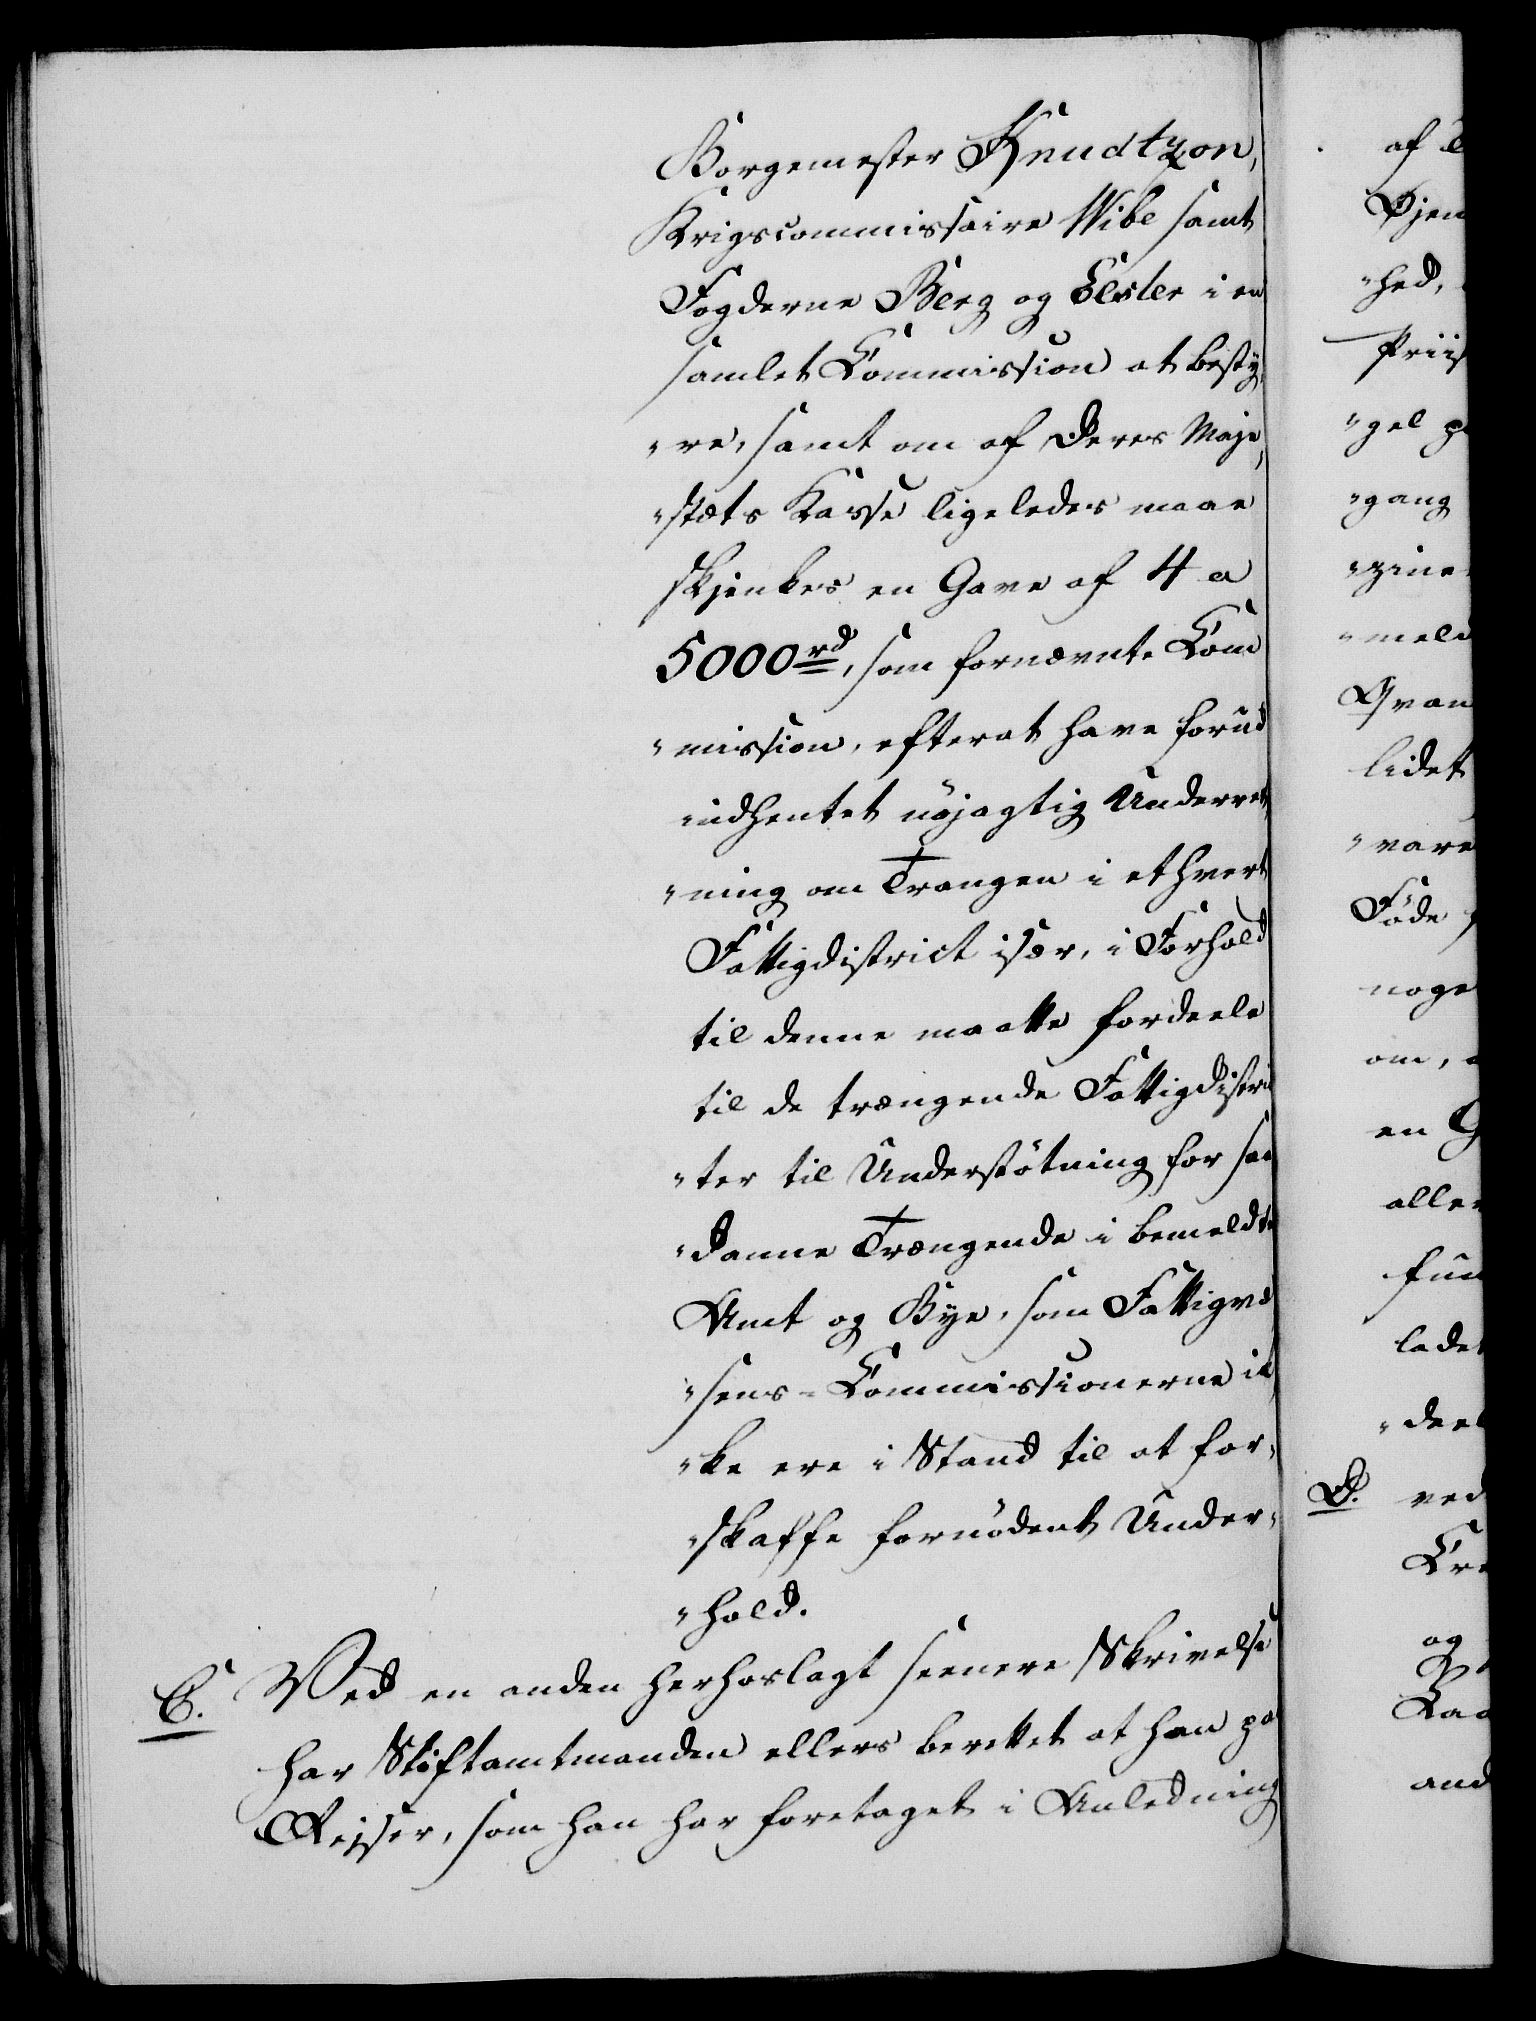 Borgemester Knudtzon,
Krigscommissaire Wibe samt
Fogderne Berg og Elster i en
samlet Commission at besty,
"re, samt om af Deres Maje,
"stæts Kasse ligeledes maae
skjenkes en Gave af 4 a
5000rd, som fornævnte Com
"mission, efterat have forud
indhentet nøjagtig Underret,
"ning om Trangen i ethvert
Fattigdistrict især, i Forhold
til denne maatte fordeele
til de trængende Fattigdistric
"ter til Understøtning for saa
"danne Trængende i bemeldte
Amt og Bye, som Fattigvæ
"sens-Commissionerne ik
"ke ere i Stand til at for-
"skaffe fornødent Under-
"hold.
C. Ved en anden herhoslagt seenere Skrivelse
har Stiftamtmanden ellers berettet at han paa
Rejser, som han har foretaget i Anledning
af
Øjen
"hed,
Priis
"gel
"gang
"zine
"mele
Qvan
lidet
"vare
Føde
noge
om,
en G
alle
fun
ladet
"deel
D. ved
Cre
og
Raa
and